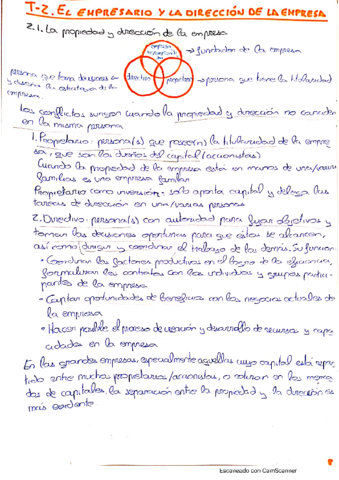 T-2. EL EMPRESARIO Y LA DIRECCIÓN DE LA EMPRESA
2.1. La propiedad y dirección de la empresa
empresario
fundador de la empresa
persona que toma decisiones en
directivo
propietario
persona que tiene la titularidad
empresa
Los conflictos surgen cuando la propiedad y dirección no coinciden
en la misma persona
1. Propietario: persona(s) que posee(n) la titularidad de la empre
sa, que son los dueños del capital (accionistas)
Cuando la propiedad de la empresa está en manos de una/varias
familias es una empresa familiar
Propietario como inversión - solo aporta capital y delega las
tareas de dirección en una/varias personas
2. Directivo: persona(s) con autoridad para fijar objetivos y
toman las decisiones oportunas para que éstos se alcancen,
así como dirigir y coordinar el trabajo de los demás. Su función:
• Coordinar los factores productivos en el logro de la eficiencia,
formalizar los contratos con los individuos y grupos partici-
pantes de la empresa
• Captan oportunidades de beneficios con los negocios actuales de
la empresa
• Hacen posible el proceso de creación y desarrollo de recursos y capa
cidades en la empresa
En las grandes empresas, especialmente aquellas cuyo capital está repar
tido entre muchos propietarios/accionistas, o cotizan en los merca
dos de capitales, la separación entre la propiedad y la dirección es
más evidente
8
Escaneado con CamScanner